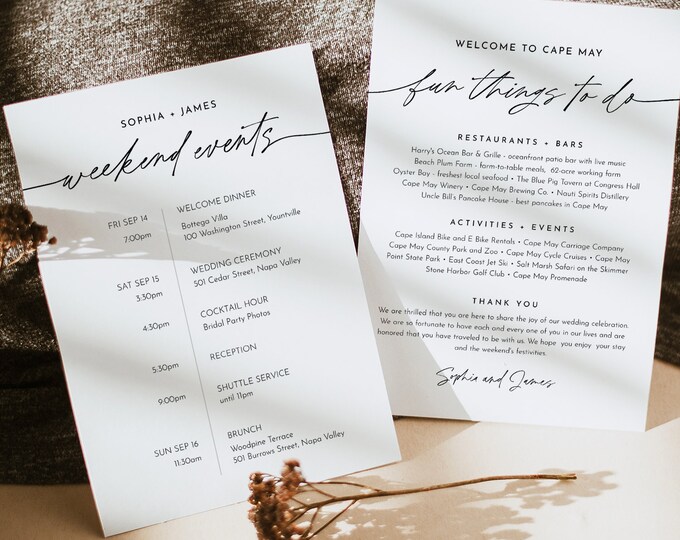 SOPHIA + JAMES
weekend events
FRI SEP 14
7:00pm
WELCOME DINNER
Bottega Villa
100 Washington Street, Yountville
SAT SEP 15
3:30pm
WEDDING CEREMONY
501 Cedar Street, Napa Valley
4:30pm
COCKTAIL HOUR
Bridal Party Photos
5:30pm
RECEPTION
9:00pm
SHUTTLE SERVICE
until 11pm
SUN SEP 16
11:30am
BRUNCH
Woodpine Terrace
501 Burrows Street, Napa Valley
WELCOME TO CAPE MAY
fun things to do
RESTAURANTS + BARS
Harry's Ocean Bar & Grille - oceanfront patio bar with live music
Beach Plum Farm - farm-to-table meals, 62-acre working farm
Oyster Bay - freshest local seafood • The Blue Pig Tavern at Congress Hall
Cape May Winery • Cape May Brewing Co. • Nauti Spirits Distillery
Uncle Bill's Pancake House - best pancakes in Cape May
ACTIVITIES + EVENTS
Cape Island Bike and E Bike Rentals • Cape May Carriage Company
Cape May County Park and Zoo • Cape May Cycle Cruises • Cape May
Point State Park • East Coast Jet Ski • Salt Marsh Safari on the Skimmer
Stone Harbor Golf Club • Cape May Promenade
THANK YOU
We are thrilled that you are here to share the joy of our wedding celebration.
We are so fortunate to have each and every one of you in our lives and are
honored that you have traveled to be with us. We hope you enjoy your stay
and the weekend's festivities.
Sophia and James